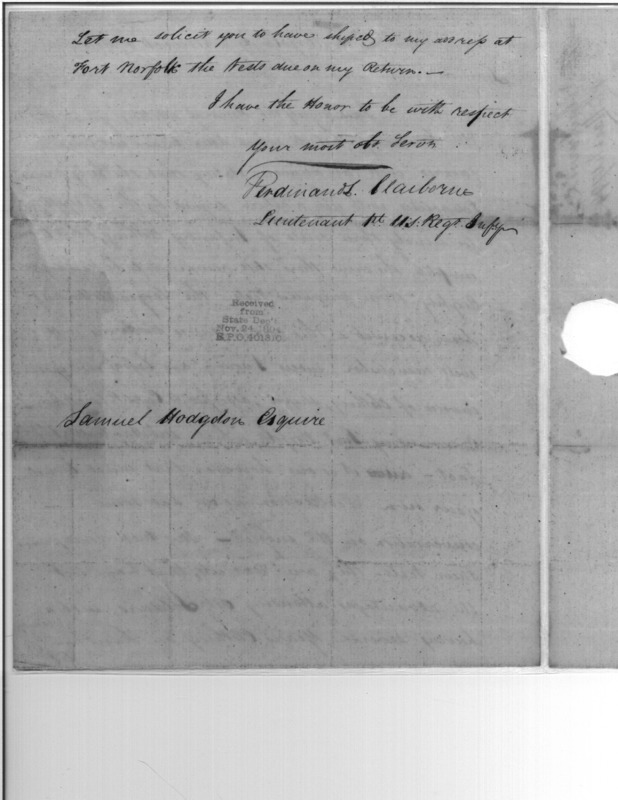 Let me solicit you to have shiped to my adress at
Fort Norfolk the Vests due on my Return.—
I have the Honor to be with respect
Your most obt Servt
Ferdinand L. Claiborne
Lieutenant 1st U.S. Regt Infty
Received
from
State Dep't
Nov. 24, 1894
R.P.O. 401310
Samuel Hodgdon Esquire